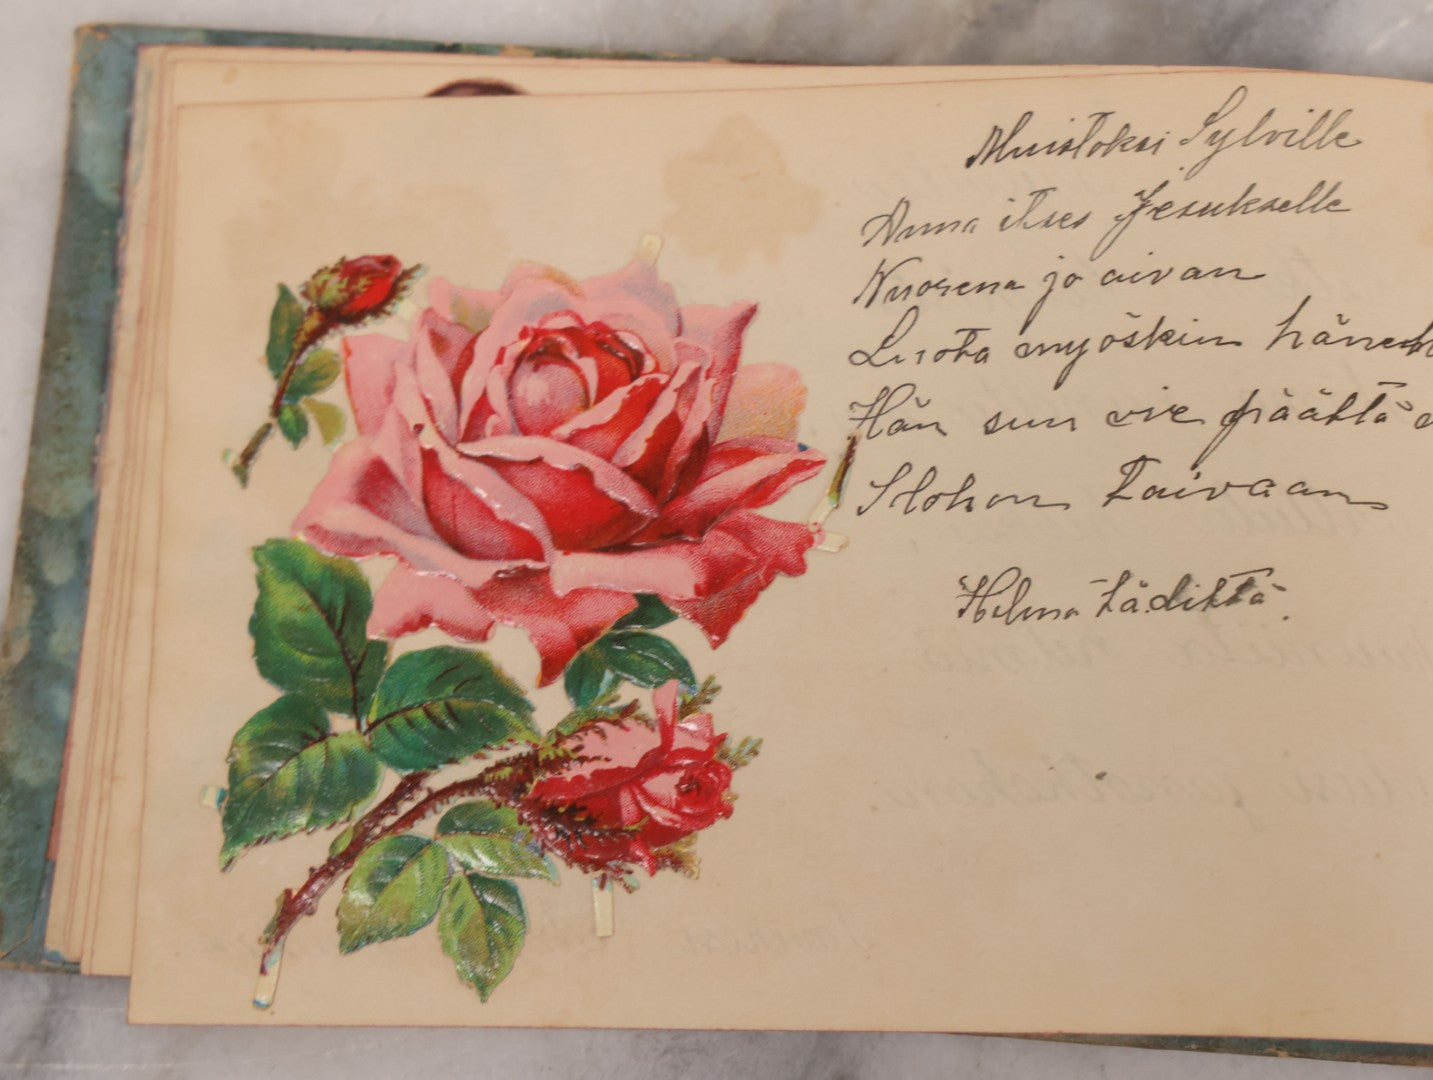 Muistoksi Sylville
Anna itses Jesukselle
Nuorena jo aivan
Luota myöskin
Hän sun vie päältä
Ilohon Taivaan
Helma tädiltä.